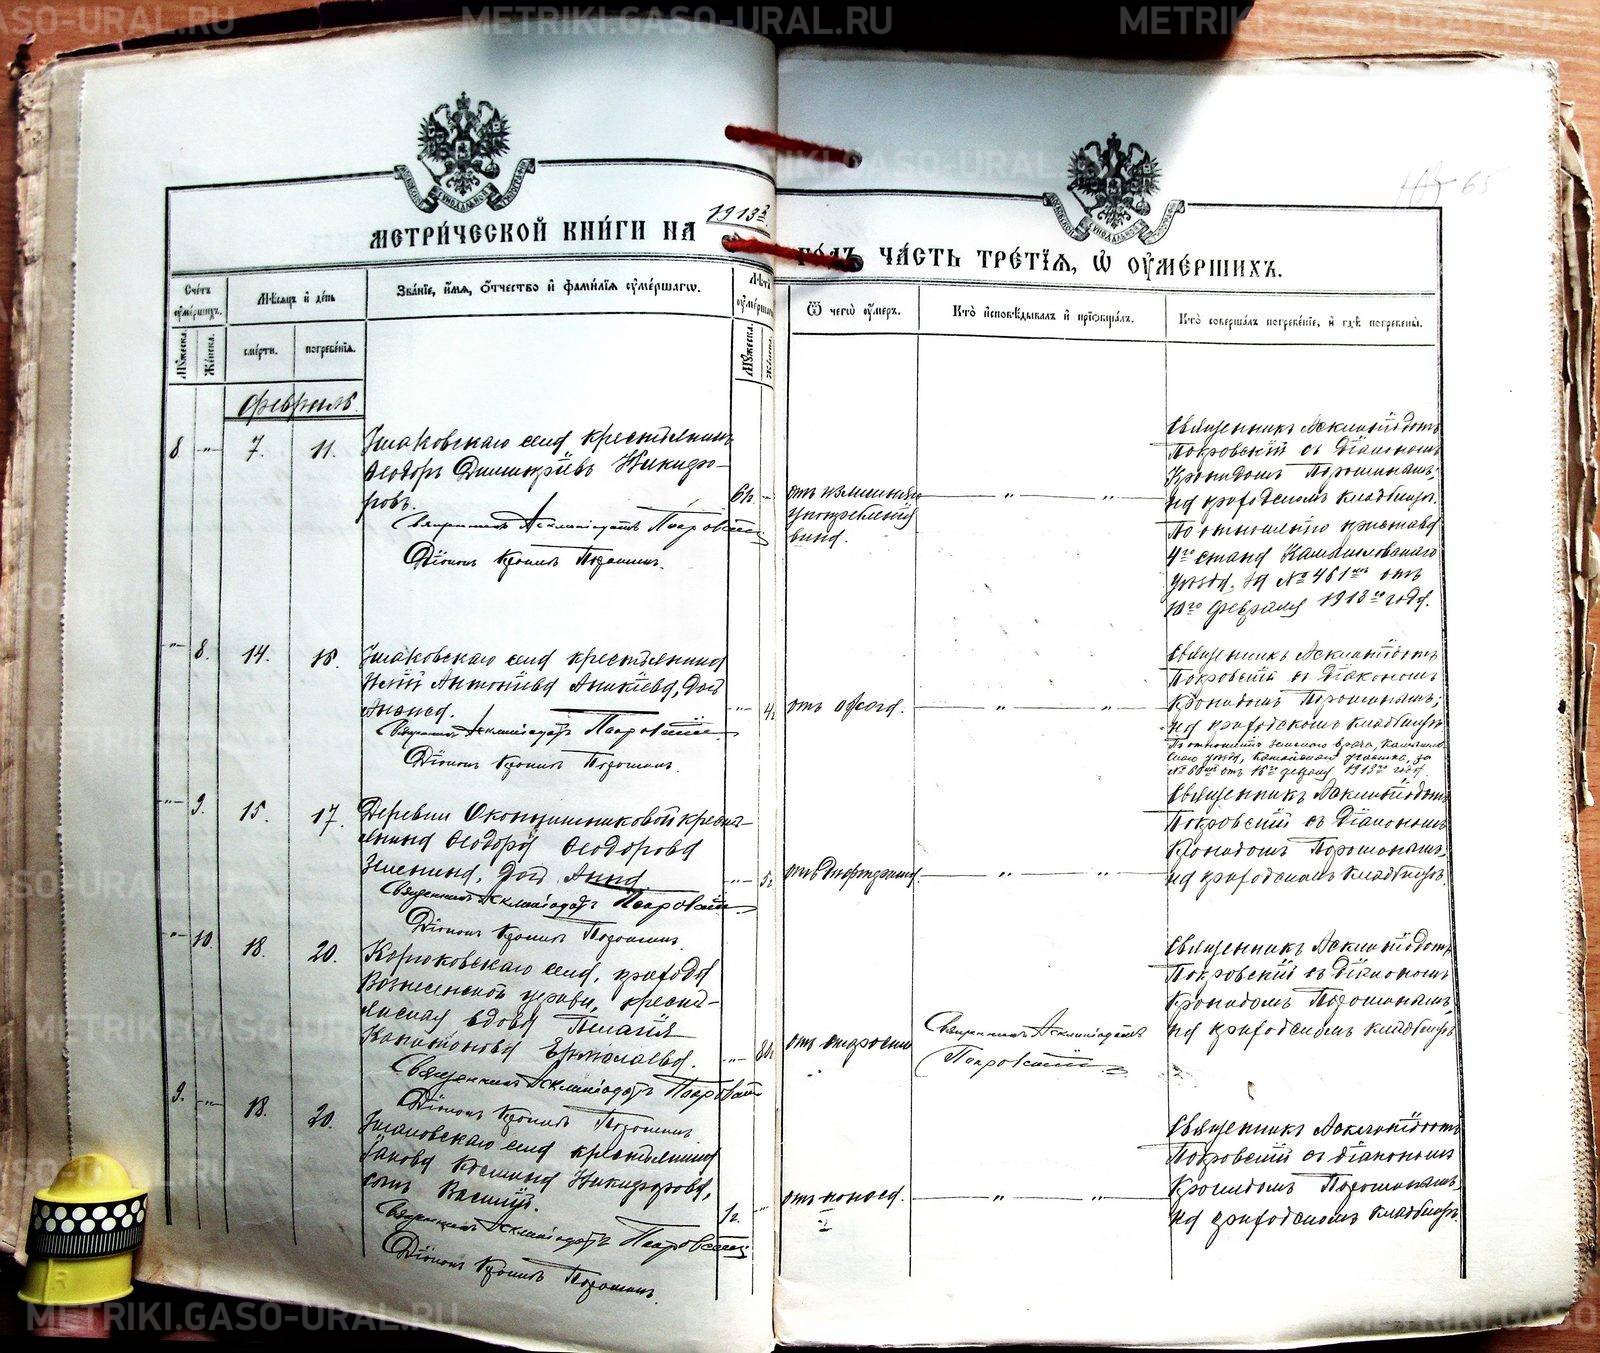 METRIKI.GASO-URAL.RU
65
МЕТРИ́ЧЕСКОЙ КНИ́ГИ НА 1913 й
ГО́ДЪ ЧА́СТЬ ТРЕ́ТІѦ, Ѡ ОУМЕ́РШИХЪ.
Счетъ оумершихъ.
Мужеска.
Женска.
Мѣсяцъ и день
смерти.
погребенія.
Званіе, имя, отчество и фамилія оумершагѡ.
Лѣта оумершаго
Мужеска.
Женска.
Ѿ чегѡ оумеръ.
Кто исповѣдывалъ и пріобщалъ.
Кто совершалъ погребеніе, и гдѣ погребены.
Февраль.
8 -„- 7. 11.
село крестьянинъ
Ѳеодоръ Димитріевъ Никифо-
ровъ.
Священникъ Асклипіодотъ Покровскій
Діаконъ Кронидъ Порошинъ.
отъ излишняго
употребленія
вина.
Священникъ Асклипіодотъ
Покровскій съ Діакономъ
Кронидомъ Порошинымъ;
на приходскомъ кладбищѣ.
По отношенію пристава
4го стана Камышловскаго
уѣзда, за № 461мъ отъ
10го февраля 1913го года.
-„- 8. 14. 16.
села крестьянина
Антоніева Аникіева, дочь
Священникъ Асклипіодотъ Покровскій
Діаконъ Кронидъ Порошинъ.
4 г.
Священникъ Асклипіодотъ
Покровскій съ Діакономъ
Кронидомъ Порошинымъ;
на приходскомъ кладбищѣ.
По отношенію земскаго врача, Камышлов-
скаго уѣзда, участка, за
отъ 16го февраля 1913го года.
-„- 9. 15. 17.
Деревни кресть-
янина Ѳеодора Ѳеодорова
Зиенина, дочь Анна
Священникъ Асклипіодотъ Покровскій
Діаконъ Кронидъ Порошинъ.
5 г.
Священникъ Асклипіодотъ
Покровскій съ Діакономъ
Кронидомъ Порошинымъ;
на приходскомъ кладбищѣ.
-„- 10. 18. 20.
Корюковскаго села, прихода
Вознесенской церкви, кресть-
янская вдова Пелагія
Капитонова Ермолаева.
Священникъ Асклипіодотъ Покровскій
Діаконъ Кронидъ Порошинъ.
80 г.
отъ старости
Священникъ Асклипіодотъ
Покровскій
Священникъ Асклипіодотъ
Покровскій съ Діакономъ
Кронидомъ Порошинымъ;
на приходскомъ кладбищѣ
9. -„- 18. 20.
села крестьянина
Іакова Косьмина Никифорова,
сынъ Василій.
Священникъ Асклипіодотъ Покровскій
Діаконъ Кронидъ Порошинъ.
1 г.
отъ поноса.
Священникъ Асклипіодотъ
Покровскій съ діакономъ
Кронидомъ Порошинымъ,
на приходскомъ кладбищѣ
METRIKI.GASO-URAL.RU